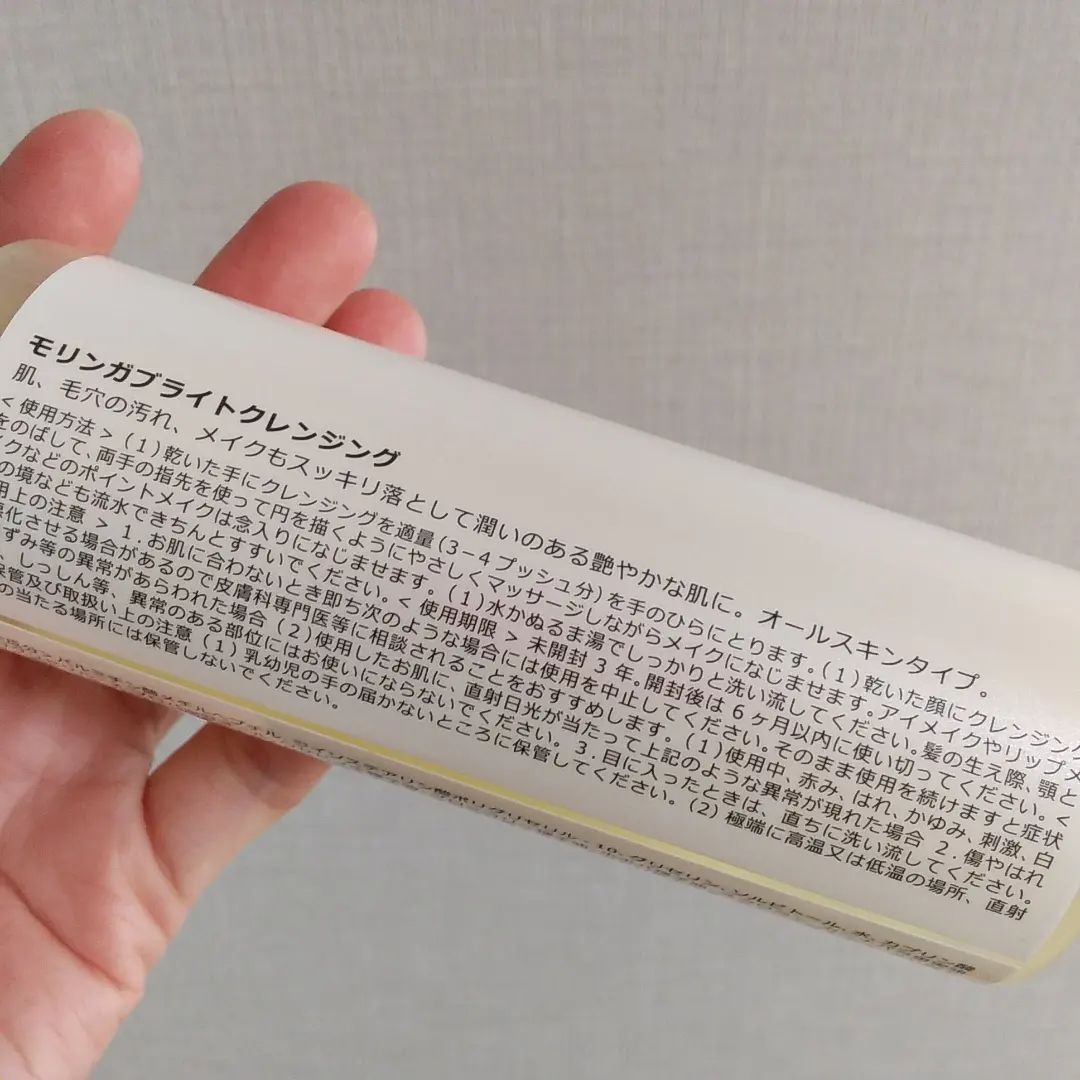 モリンガブライトクレンジング
肌、毛穴の汚れ、メイクもスッキリ落として潤いのある艶やかな肌に。オールスキンタイプ。
< 使用方法 > (1)乾いた手にクレンジングを適量(3−4プッシュ分)を手のひらにとります。(1)乾いた顔にクレンジング
をのばして、両手の指先を使って円を描くようにやさしくマッサージしながらメイクになじませます。アイメイクやリップメ
イクなどのポイントメイクは念入りになじませます。(1)水かぬるま湯でしっかりと洗い流してください。髪の生え際、顎と
の境なども流水できちんとすすいでください。< 使用期限 > 未開封3年。開封後は6ヶ月以内に使い切ってください。<
用上の注意 > 1.お肌に合わないとき即ち次のような場合には使用を中止してください。そのまま使用を続けますと症状
悪化させる場合があるので皮膚科専門医等に相談されることをおすすめします。(1)使用中、赤み、はれ、かゆみ、刺激、白
ずみ等の異常があらわれた場合 (2)使用したお肌に、直射日光が当たって上記のような異常が現れた場合 2.傷やはれ
、しっしん等、異常のある部位にはお使いにならないでください。3.目に入ったときは、直ちに洗い流してください。
保管及び取扱い上の注意 (1)乳幼児の手の届かないところに保管してください。(2)極端に高温又は低温の場所、直射
の当たる場所には保管しないでください。
ステアリン酸ポリグリセリル-10、グリセリン、ソルビトール、水、カプリン酸